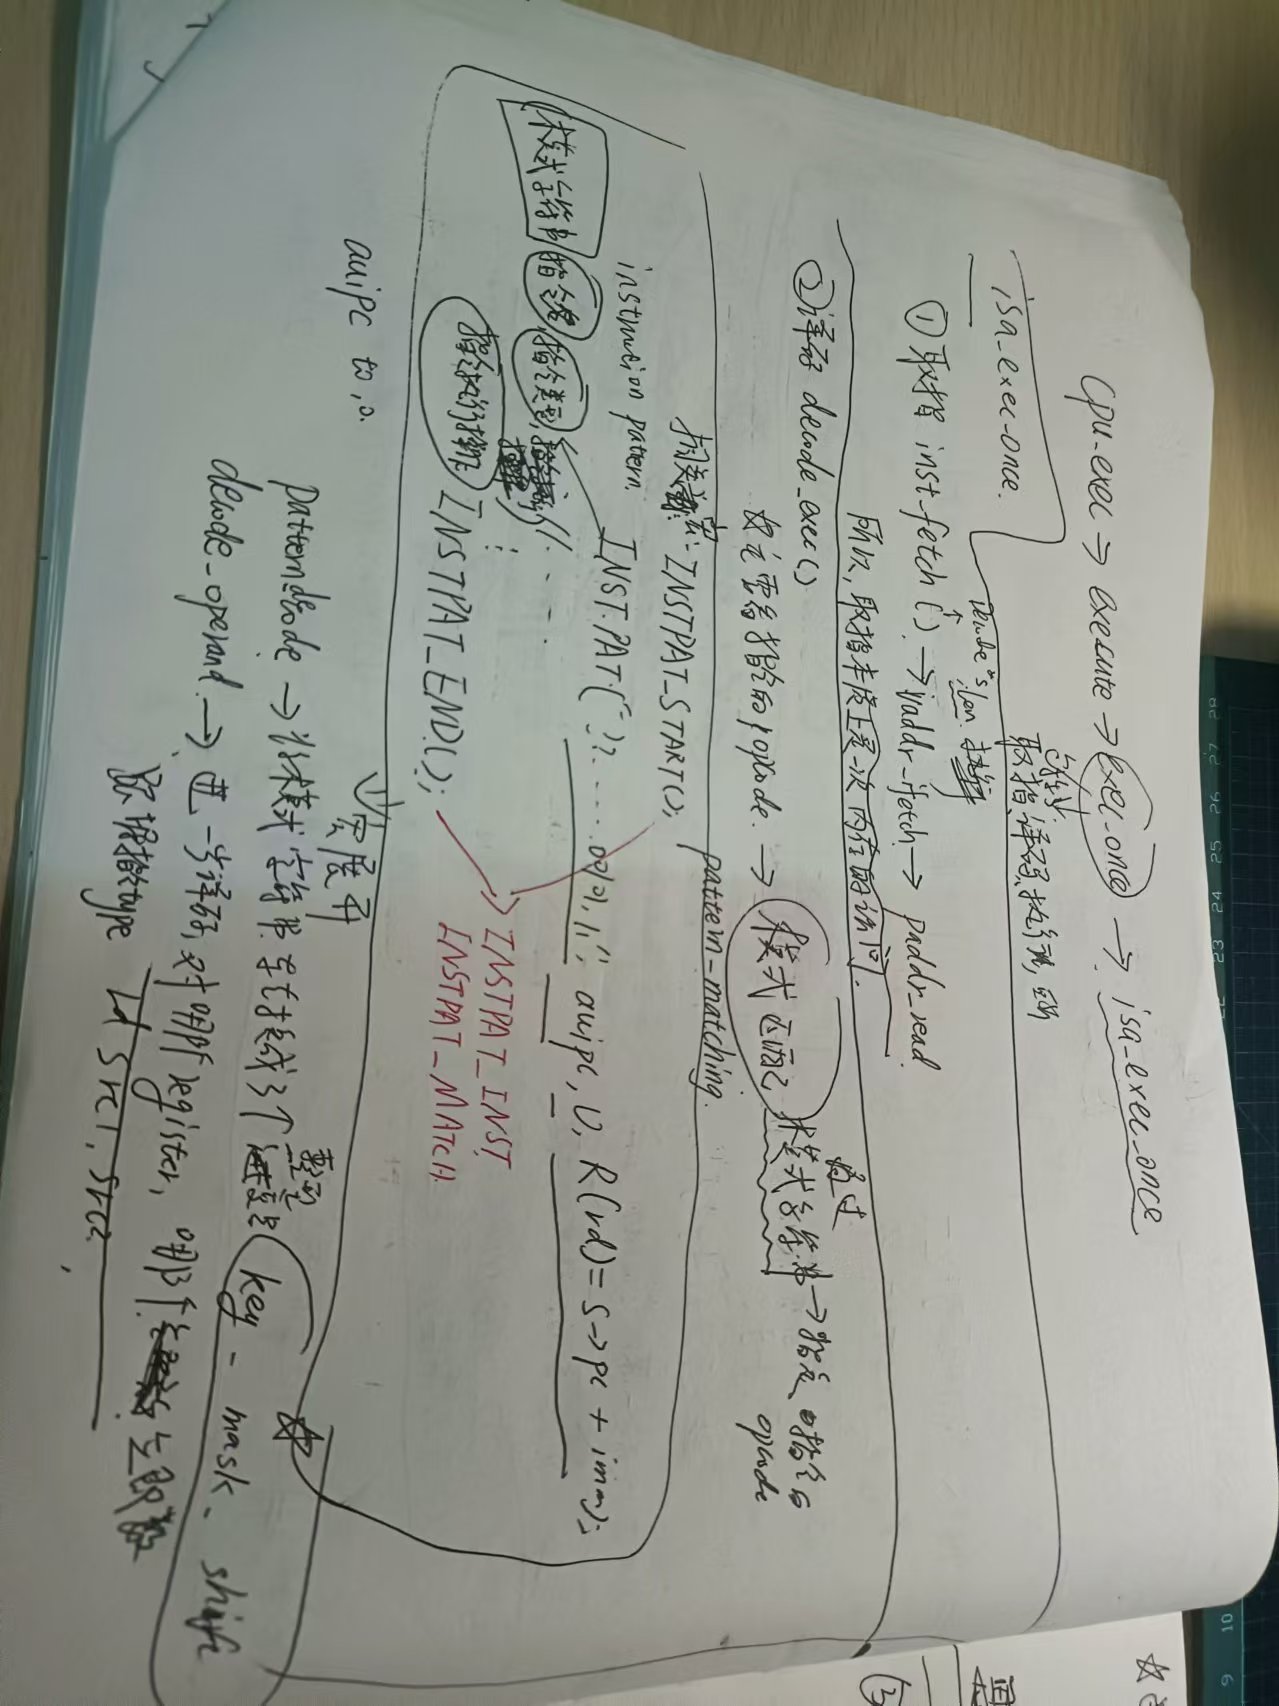 cpu_exec → execute → exec_once → isa_exec_once
包括
取指、译码、执行,更新
isa_exec_once.
Decode *s
.len
① 取指 inst_fetch() → vaddr_ifetch → paddr_read
所以,取指本质上是一次内存的访问.
② 译码 decode_exec()
主要看指令的 opcode. → 模式匹配
通过
模式字符串 → 指定 指令的
opcode
pattern-matching.
相关宏: INSTPAT_START();
instruction pattern.
INSTPAT("??.....00101 11", auipc, U, R(rd)=s→pc + imm);
(模式字符串 指令名, 指令类型,
指令执行操作)
INSTPAT_END();
INSTPAT_INST
INSTPAT_MATCH
auipc t0,0.
宏展开
pattern_decode → 将模式字符串转换成3个整型变量 key - mask - shift
decode_operand → 进一步译码,对哪个register,哪个立即数
跟据指令type rd src1, src2,
③